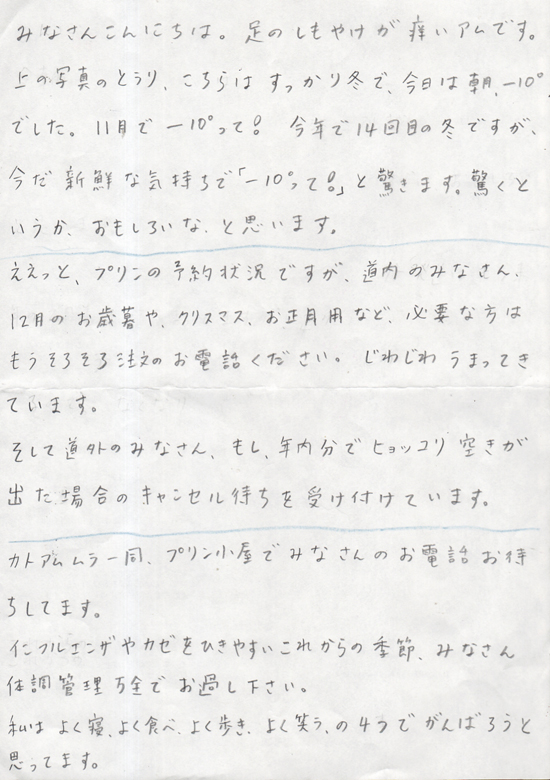 みなさんこんにちは。足のしもやけが痒いアムです。
上の写真のとうり、こちらはすっかり冬で、今日は朝、−10°
でした。11月で−10°って！ 今年で14回目の冬ですが、
今だ新鮮な気持ちで「−10°って！」と驚きます。驚くと
いうか、おもしろいな、と思います。
ええっと、プリンの予約状況ですが、道内のみなさん、
12月のお歳暮や、クリスマス、お正月用など、必要な方は
もうそろそろ注文のお電話ください。じわじわうまってき
ています。
そして道外のみなさん、もし、年内分でヒョッコリ空きが
出た場合のキャンセル待ちを受け付けています。
カトアムムラ一同、プリン小屋でみなさんのお電話お待
ちしてます。
インフルエンザやカゼをひきやすいこれからの季節、みなさん
体調管理万全でお過し下さい。
私はよく寝、よく食べ、よく歩き、よく笑う、の4つでがんばろうと
思ってます。